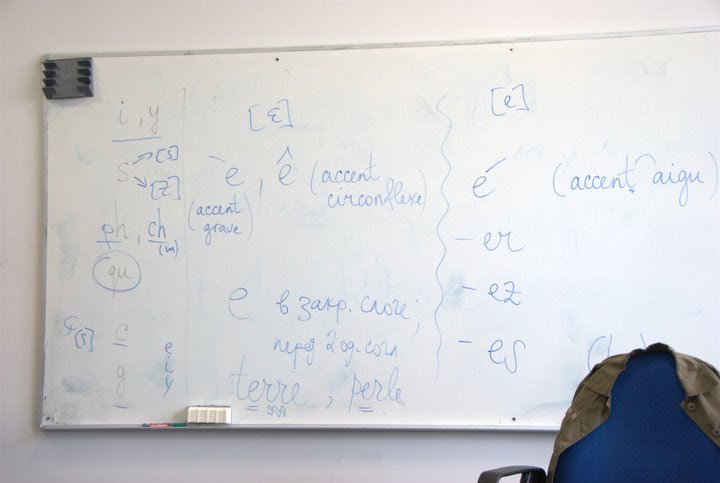 i, y
s [s]
[z]
ph, ch
(ш)
qu
[s]
c
g
e
i
y
[ɛ]
è, ê (accent circonflexe)
(accent grave)
e в закр. слоге;
перед 2 од. согл.
terre, perle
[e]
é (accent aigu)
- er
- ez
- es